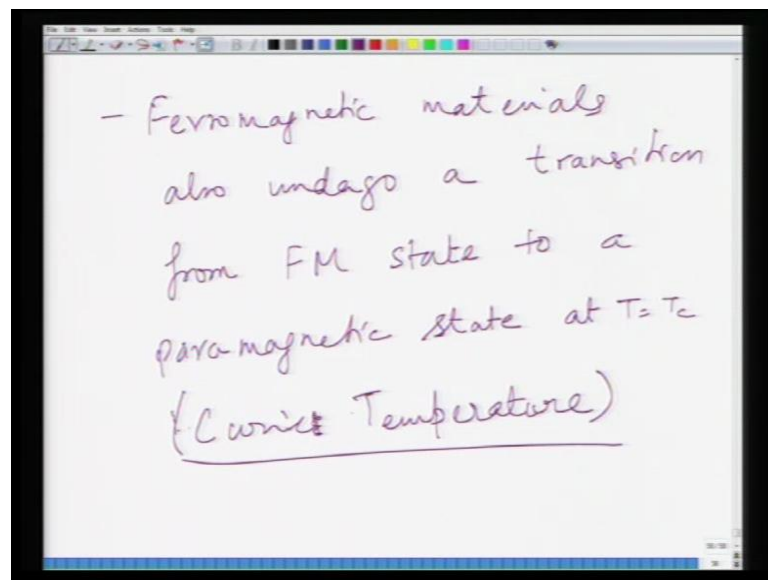 File Edit View Insert Actions Tools Help
- Ferromagnetic materials
also undergo a transition
from FM state to a
paramagnetic state at T = Tc
(Curie Temperature)